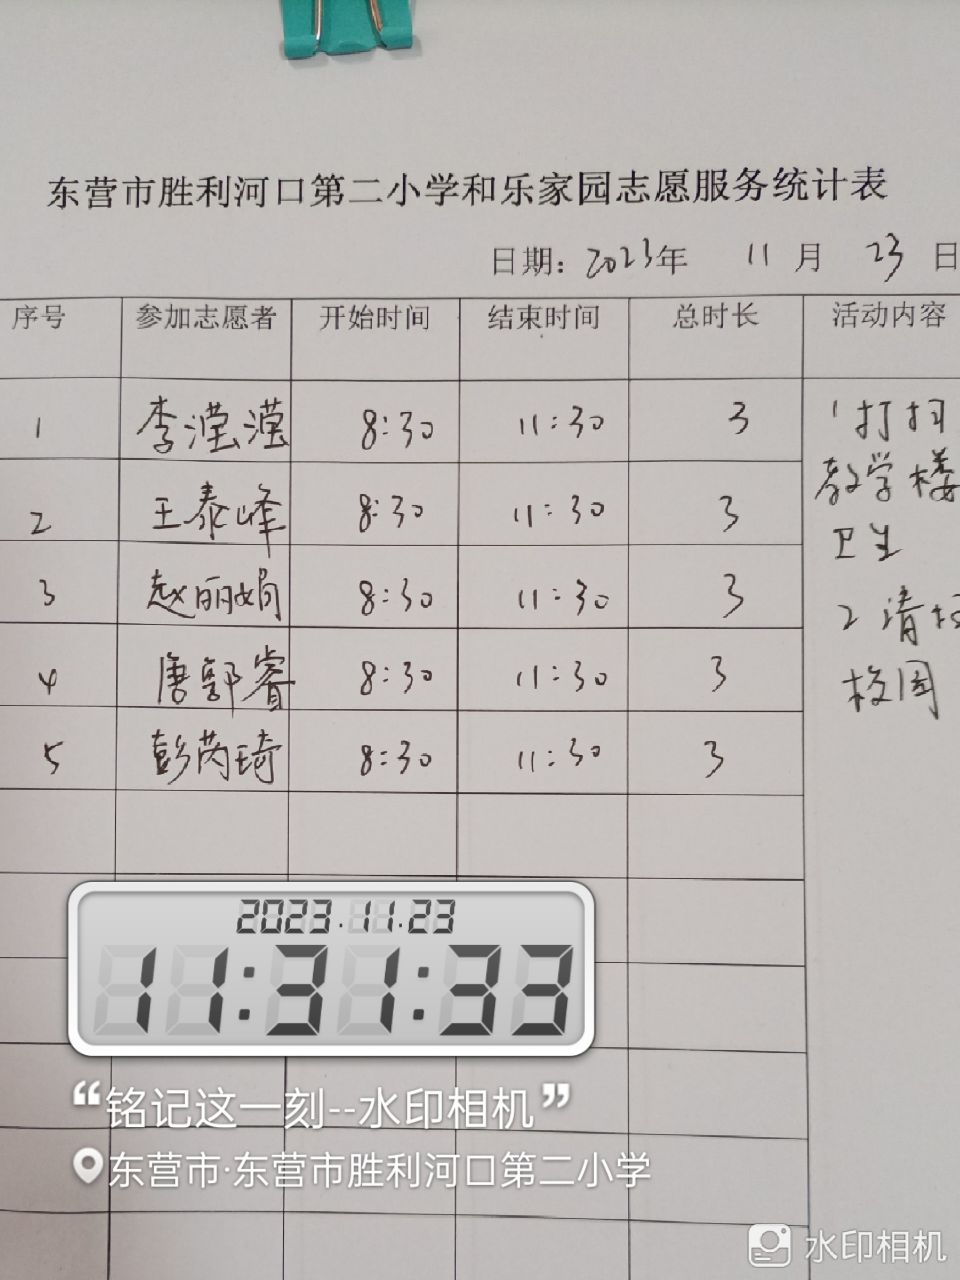 东营市胜利河口第二小学和乐家园志愿服务统计表
日期：2023年 11 月 23 日
序号 参加志愿者 开始时间 结束时间 总时长 活动内容
1 李滢滢 8:30 11:30 3
2 王泰峰 8:30 11:30 3
3 赵丽娟 8:30 11:30 3
4 唐郭睿 8:30 11:30 3
5 彭芮琦 8:30 11:30 3
1 打扫
教学楼
卫生
2 清扫
校园
2023.11.23
11:31:33
“铭记这一刻--水印相机”
东营市·东营市胜利河口第二小学
水印相机